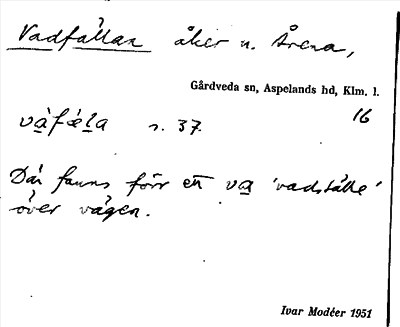 Vadfällan åker n. Årena,
Gårdveda sn, Aspelands hd, Klm. l.
16
s. 37.
Där fanns förr ett va 'vadställe'
över vägen.
Ivar Modéer 1951